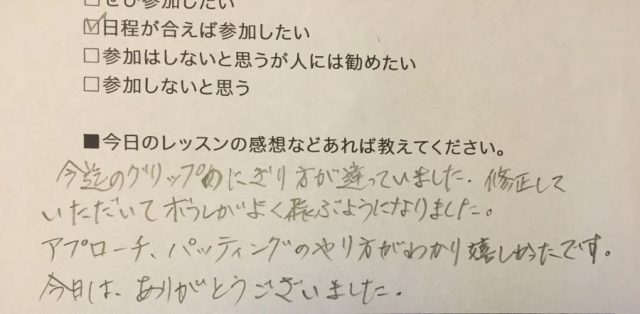 ぜひ参加したい
☑日程が合えば参加したい
□参加はしないと思うが人には勧めたい
□参加しないと思う
■今日のレッスンの感想などあれば教えてください。
今迄のグリップのにぎり方が違っていました。修正して
いただいてボールがよく飛ぶようになりました。
アプローチ、パッティングのやり方がわかり嬉しかったです。
今日は、ありがとうございました。